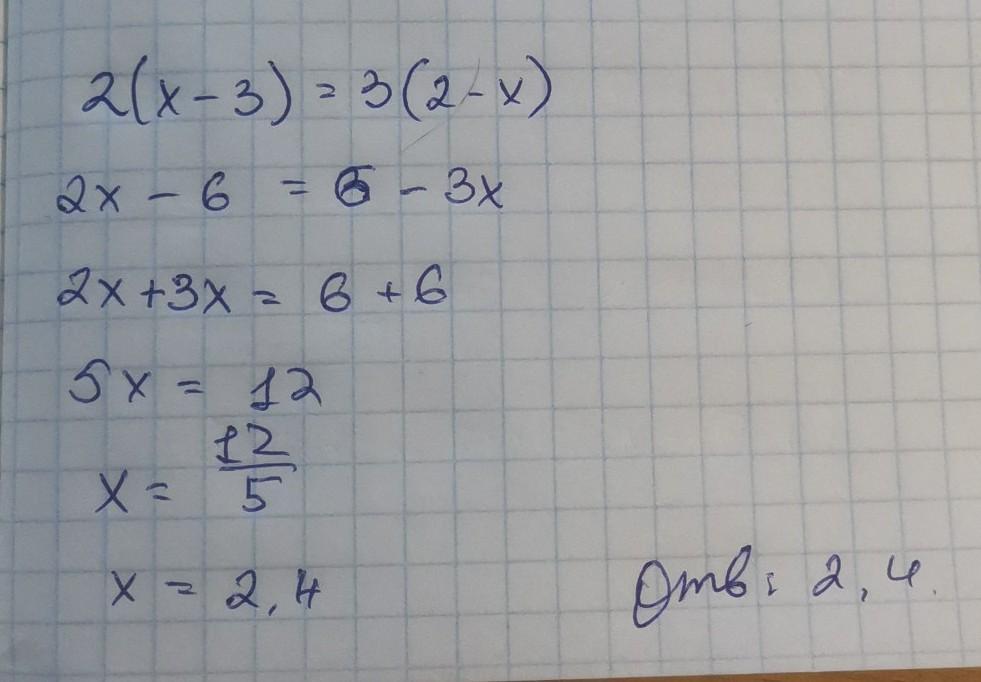 2(x-3) = 3(2-x)
2x - 6 = 6 - 3x
2x+3x = 6 + 6
5x = 12
x = 12/5
x = 2,4
Отв: 2,4.